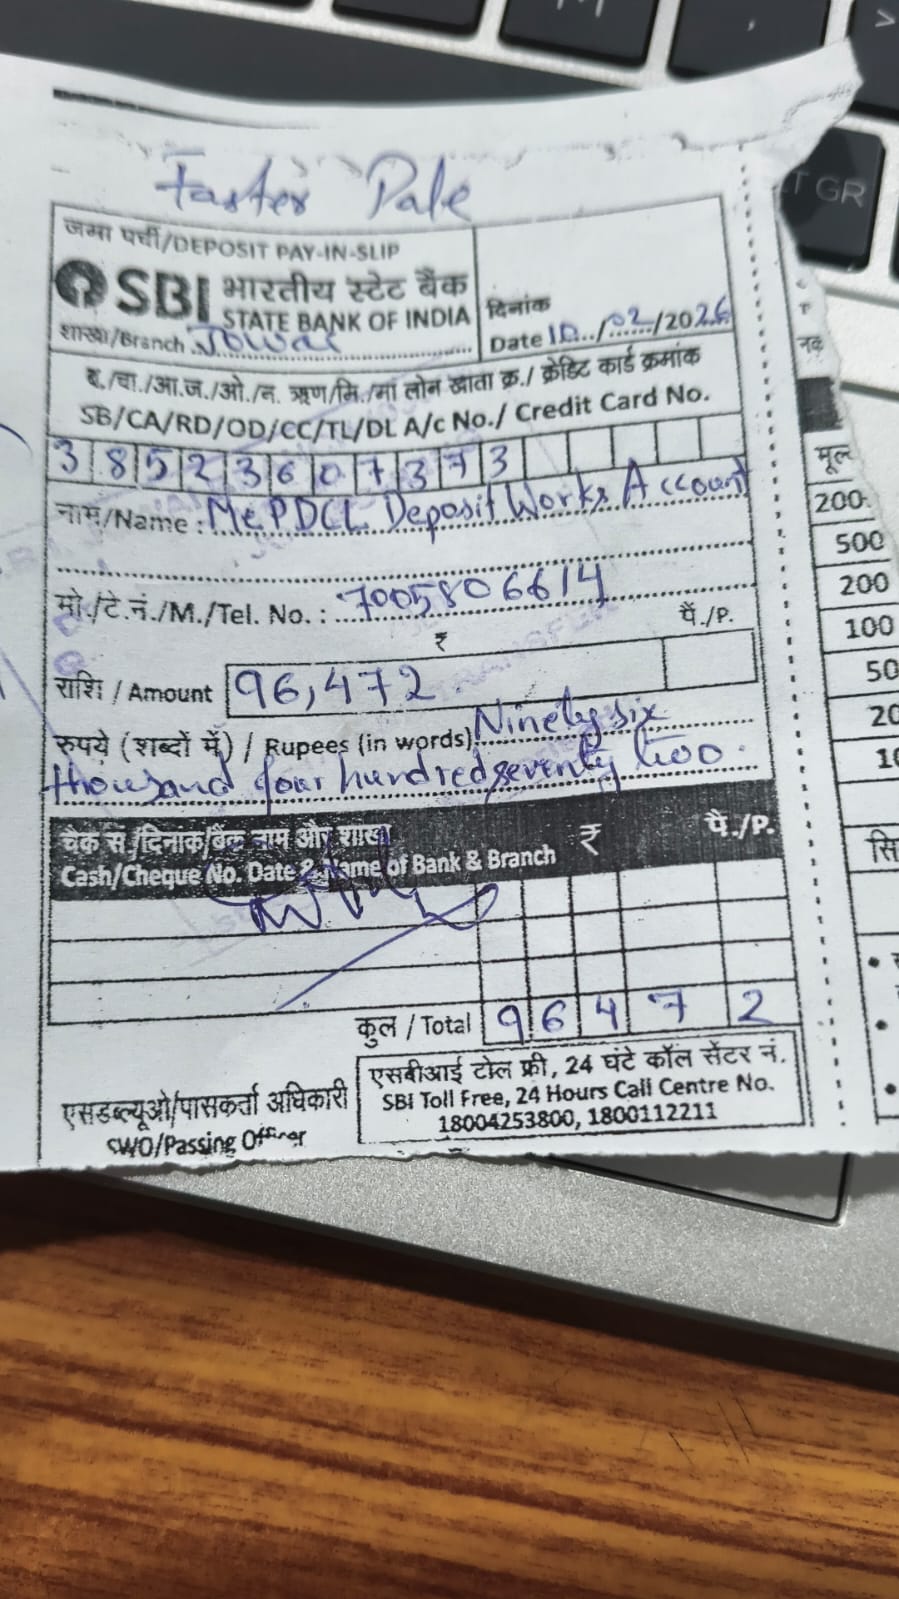 Faster Pale
जमा पर्ची/DEPOSIT PAY-IN-SLIP
SBI भारतीय स्टेट बैंक
STATE BANK OF INDIA
शाखा/Branch Jowai
दिनांक
Date 10/02/2026
ब./चा./आ.ज./ओ./न. ऋण/मि./मां लोन खाता क्र./ क्रेडिट कार्ड क्रमांक
SB/CA/RD/OD/CC/TL/DL A/c No./ Credit Card No.
38523607373
नाम/Name : MePDCL Deposit Works Account
मो./टे.नं./M./Tel. No. : 7005806614
₹ पै./P.
राशि / Amount 96,472
रुपये (शब्दों में) / Rupees (in words) Ninety six
thousand four hundred seventy two.
चैक सं./दिनांक/बैंक नाम और शाखा ₹ पै./P.
Cash/Cheque No. Date & Name of Bank & Branch
कुल / Total 96472
एसबीआई टोल फ्री, 24 घंटे कॉल सेंटर नं.
SBI Toll Free, 24 Hours Call Centre No.
18004253800, 1800112211
एसडब्ल्यूओ/पासकर्ता अधिकारी
SWO/Passing Officer
मूल
200
500
200
100
50
20
10
सि
GR